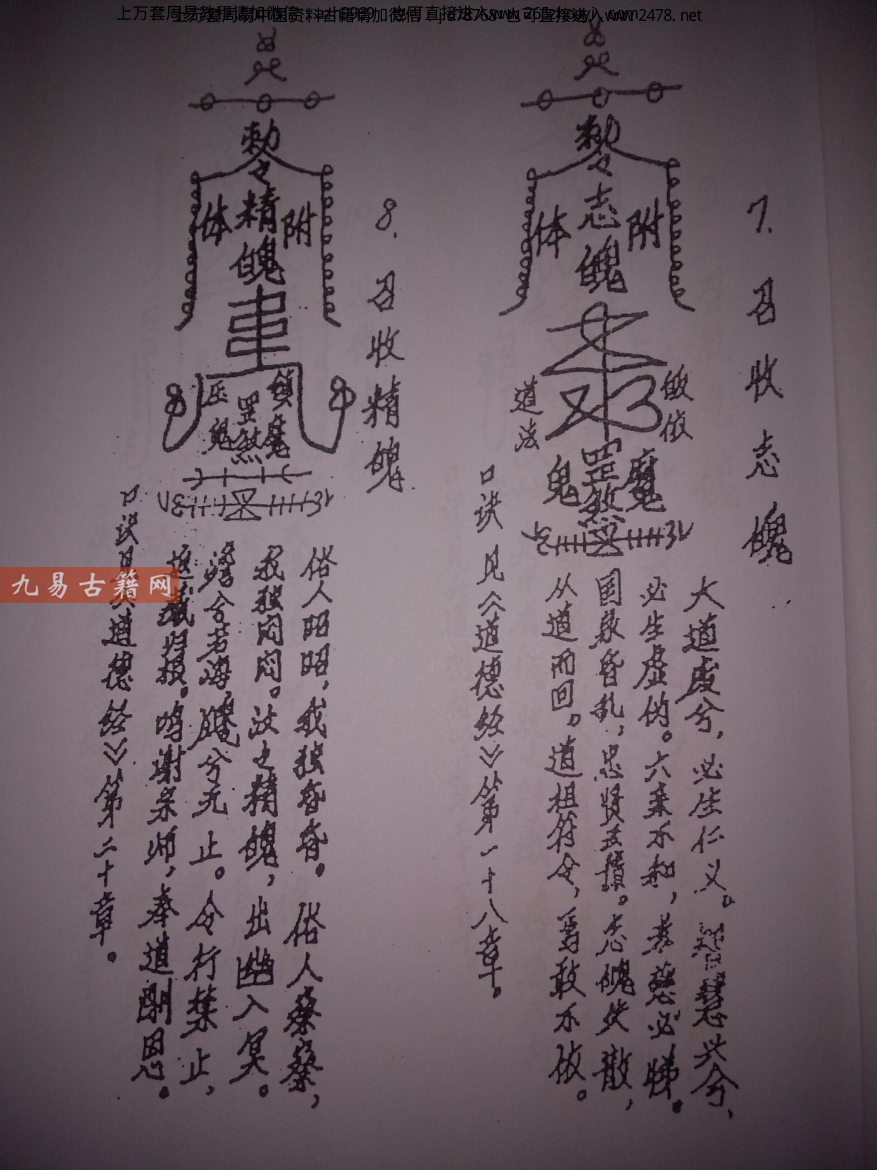 7. 召收志魄
敕令志魄
附体
皈依
道法
罡煞
魔
鬼
大道废兮，必生仁义。智慧兴兮，
必生虚伪。六亲不和，孝慈必睇。
国家昏乱，忠贤
志魄失散，
从道而回。道祖符令，焉敢不依。
口诀见《道德经》第一十八章。
8. 召收精魄
敕令精魄
附体
镇魔
罡煞
压鬼
俗人昭昭，我独昏昏。俗人察察，
我独闷闷。汝之精魄，出幽入冥。
澹兮若海，飂兮无止。令行禁止，
归根。鸣谢宗师，奉道酬恩。
口诀见《道德经》第二十章。
九易古籍网